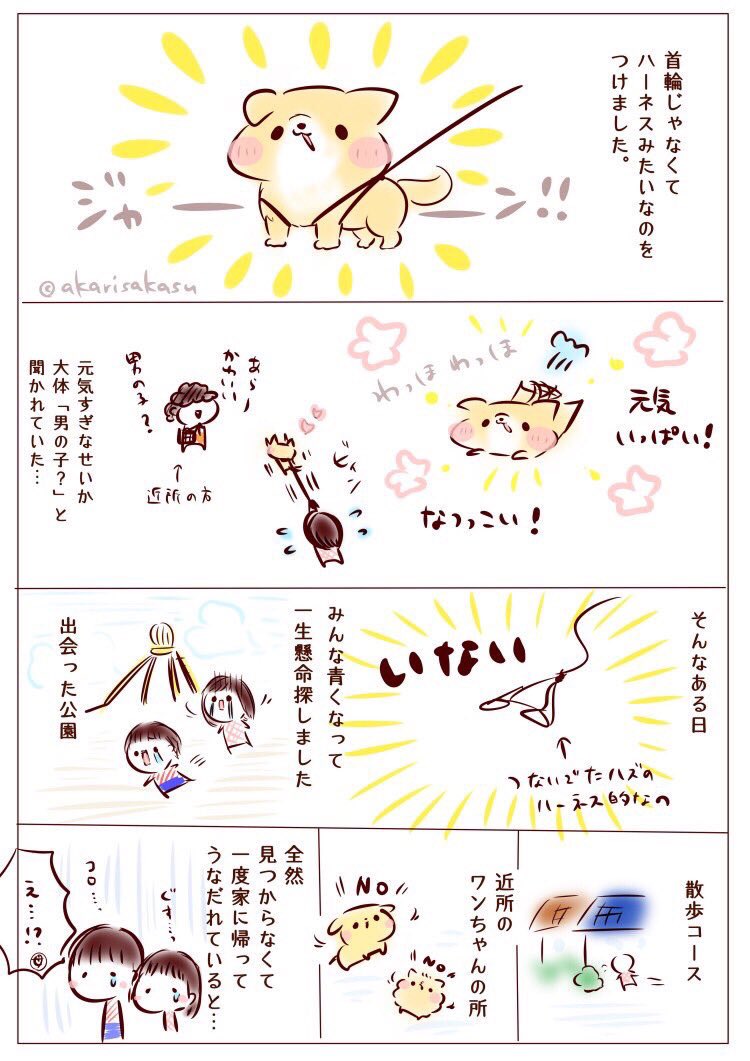 首輪じゃなくて
ハーネスみたいなのを
つけました。
ジャーーン!!
©akarisakasu
元気
いっぱい!
わっほ わっほ
なつっこい!
ビィン
あらー
かわいい
男の子?
↑
近所の方
元気すぎなせいか
大体「男の子?」と
聞かれていた…
そんなある日
いない
↑
つないでたハズの
ハーネス的なの
みんな青くなって
一生懸命探しました
出会った公園
散歩コース
近所の
ワンちゃんの所
NO
NO
全然
見つからなくて
一度家に帰って
うなだれていると…
コロ…
え…!?